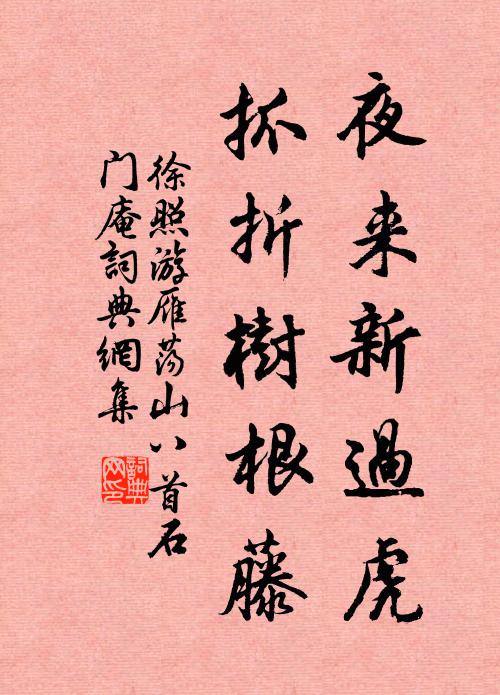 夜来新過虎
抓折樹根藤
徐照游雁荡山八首石
门庵詞典網集
詞典网印